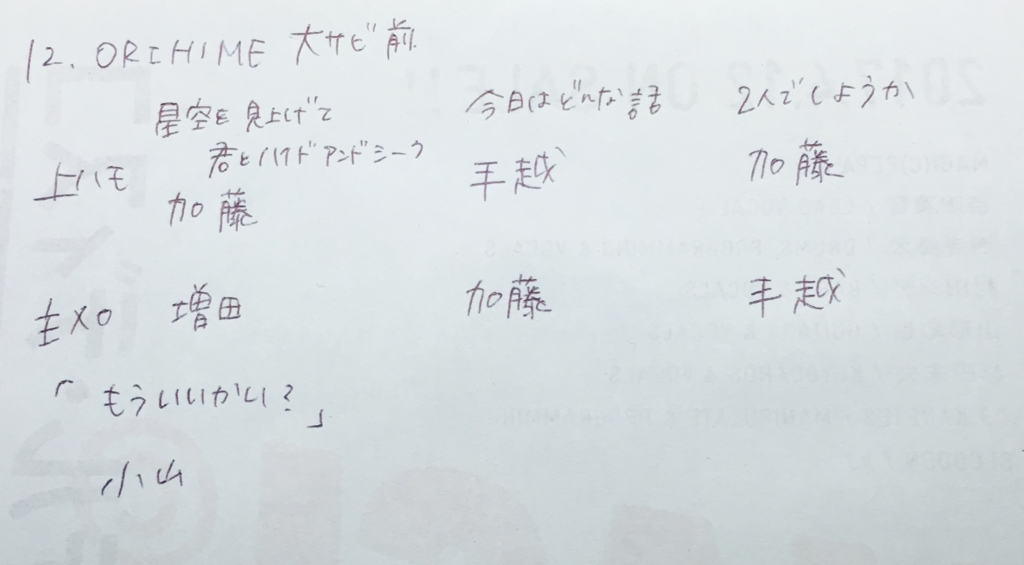 12. ORIHIME 大サビ前
星空を見上げて 今日はどんな話 2人でしようか
君とハイドアンドシーク
上ハモ 加藤 手越 加藤
主メロ 増田 加藤 手越
「もういいかい?」
小山
2017.4.12 ON SALE!!